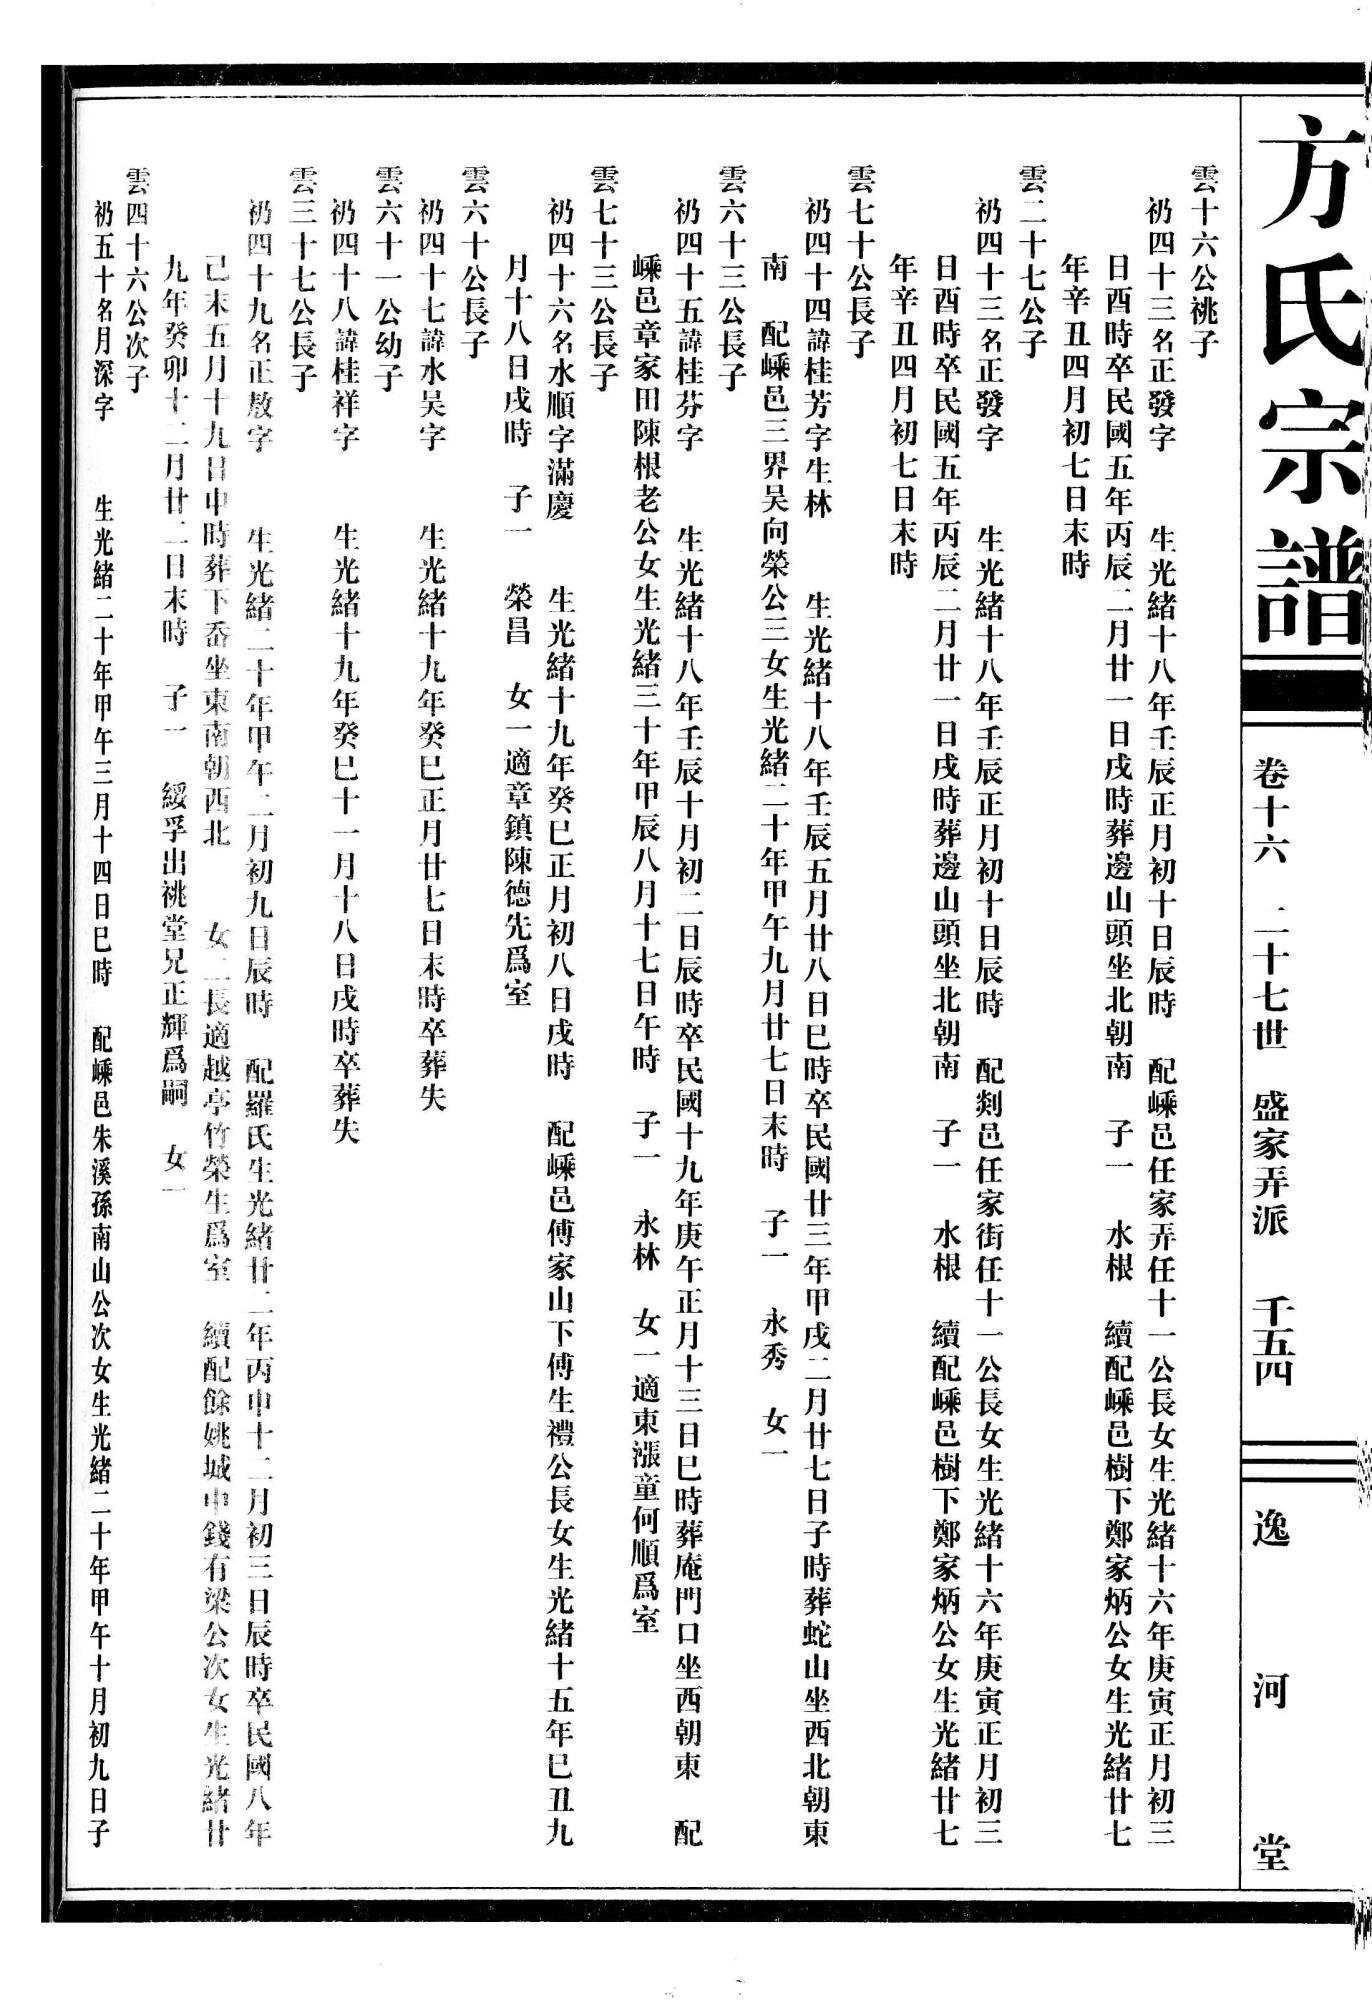 方氏宗譜
卷十六 二十七世 盛家弄派 千五四
逸河堂
雲十六公祧子
礽四十三名正發字 生光緒十八年壬辰正月初十日辰時 配嵊邑任家弄任十一公長女生光緒十六年庚寅正月初三
日酉時卒民國五年丙辰二月廿一日戌時葬邊山頭坐北朝南 子一 水根 續配嵊邑樹下鄭家炳公女生光緒廿七
年辛丑四月初七日末時
雲二十七公子
礽四十三名正發字 生光緒十八年壬辰正月初十日辰時 配剡邑任家街任十一公長女生光緒十六年庚寅正月初三
日酉時卒民國五年丙辰二月廿一日戌時葬邊山頭坐北朝南 子一 水根 續配嵊邑樹下鄭家炳公女生光緒廿七
年辛丑四月初七日末時
雲七十公長子
礽四十四諱桂芳字生林 生光緒十八年壬辰五月廿八日巳時卒民國廿三年甲戌二月廿七日子時葬蛇山坐西北朝東
南 配嵊邑三界吴向榮公三女生光緒二十年甲午九月廿七日末時 子一 永秀 女一
雲六十三公長子
礽四十五諱桂芬字 生光緒十八年壬辰十月初二日辰時卒民國十九年庚午正月十三日巳時葬庵門口坐西朝東 配
嵊邑章家田陳根老公女生光緒三十年甲辰八月十七日午時 子一 永林 女一適東漲童何順爲室
雲七十三公長子
礽四十六名水順字滿慶 生光緒十九年癸巳正月初八日戌時 配嵊邑傅家山下傅生禮公長女生光緒十五年巳丑九
月十八日戌時 子一 榮昌 女一適章鎮陳德先爲室
雲六十公長子
礽四十七諱水吴字 生光緒十九年癸巳正月廿七日末時卒葬失
雲六十一公幼子
礽四十八諱桂祥字 生光緒十九年癸巳十一月十八日戌時卒葬失
雲三十七公長子
礽四十九名正敖字 生光緒二十年甲午二月初九日辰時 配羅氏生光緒廿二年丙申十二月初三日辰時卒民國八年
己末五月十九日申時葬下岙坐東南朝西北 女二長適越亭竹榮生爲室 續配餘姚城中錢有梁公次女生光緒廿
九年癸卯十二月廿二日末時 子一 綏孚出祧堂兄正輝爲嗣 女一
雲四十六公次子
礽五十名月深字 生光緒二十年甲午三月十四日巳時 配嵊邑朱溪孫南山公次女生光緒二十年甲午十月初九日子